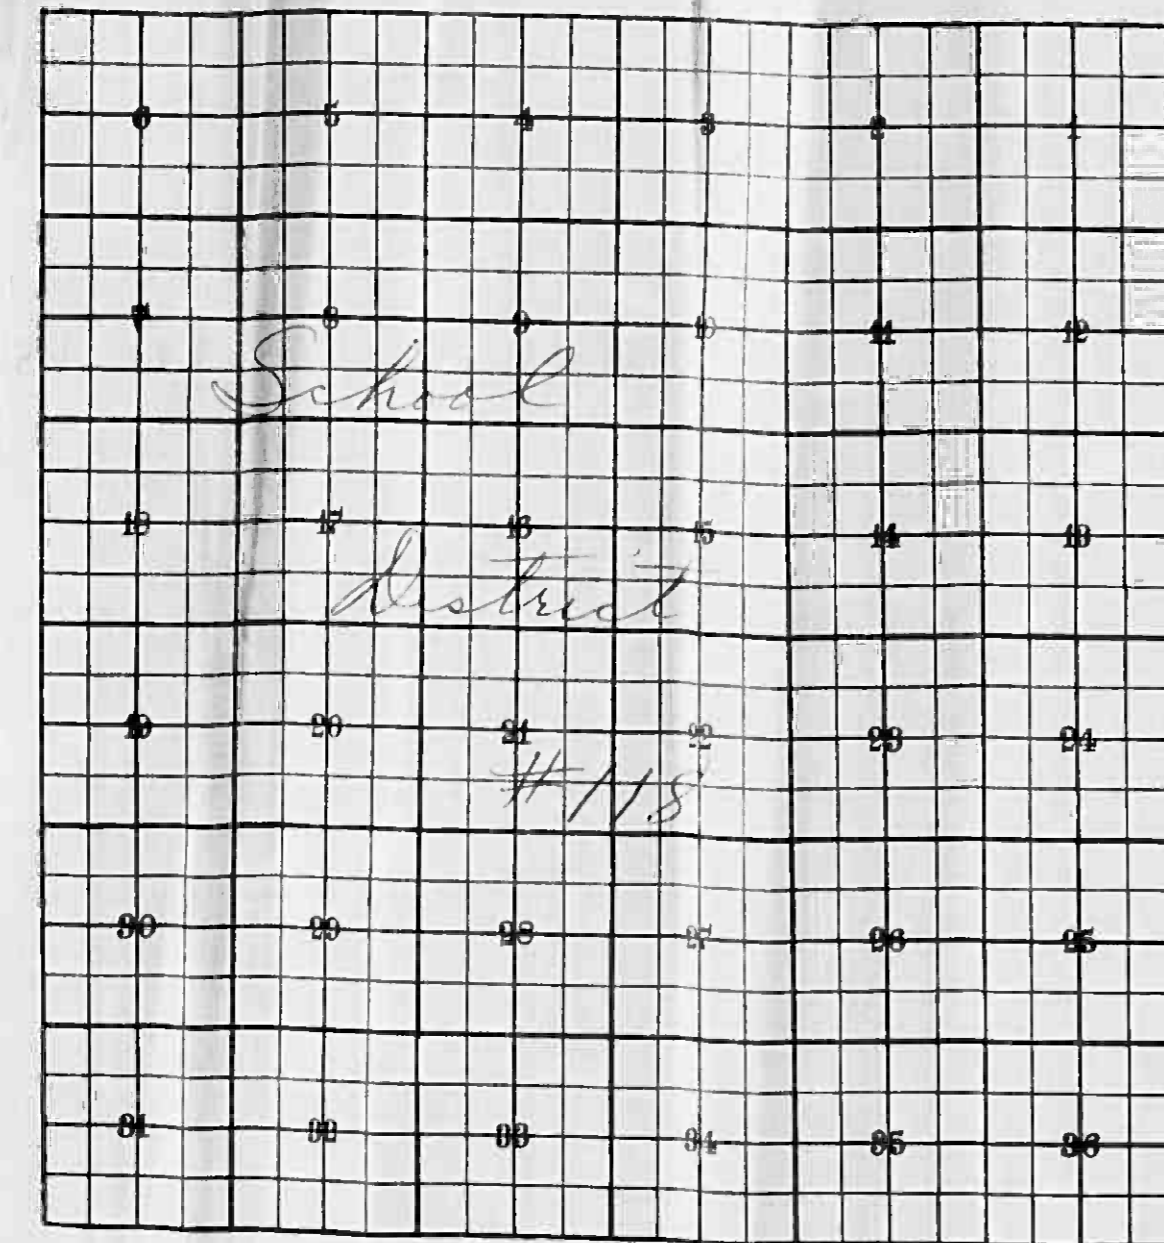 6 5 4 3 2 1
7 8 9 10 11 12
School
18 17 16 15 14 13
District
19 20 21 22 23 24
#118
30 29 28 27 26 25
31 32 33 34 35 36